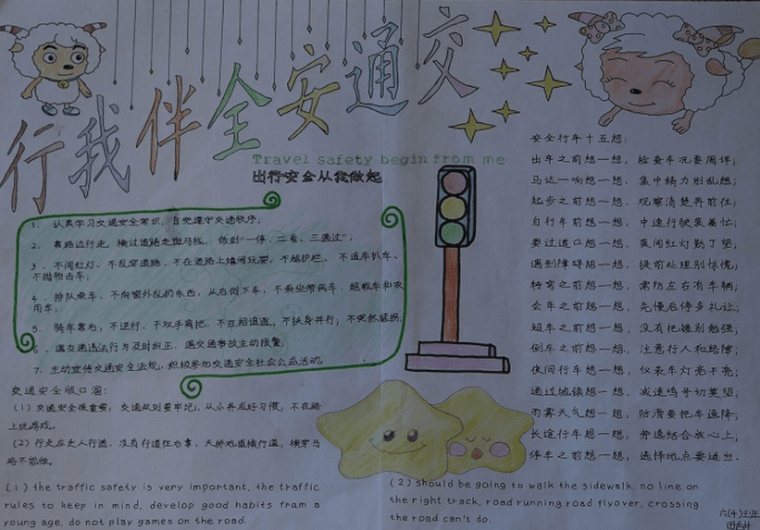 行我伴全安通交
Travel safety begin from me
出行安全从我做起
1、认真学习交通安全常识，自觉遵守交通秩序；
2、靠路边行走，横过道路走斑马线，做到“一停、二看、三通过”；
3、不闯红灯、不乱穿道路、不在道路上嬉闹玩耍，不越护栏、不追车扒车、
不抛物击车；
4、排队乘车、不向窗外乱扔东西，从右侧下车，不乘坐带病车、超载车和农
用车；
5、骑车靠右，不逆行、不双手离把、不互相追逐、不扶身并行；不突然猛拐
6、遇交通违法行为及时纠正，遇交通事故主动报警；
7、主动宣传交通安全法规，积极参加交通安全社会公益活动。
交通安全顺口溜：
(1)交通安全很重要，交通规则要牢记，从小养成好习惯，不在路
上玩游戏。
(2)行走应走人行道，没有行道往右靠，天桥地道横行道，横穿马
路不能做。
(1) the traffic safety is very important, the traffic
rules to keep in mind, develop good habits fram a
young age, do not play games on the road.
(2) should be going to walk the sidewalk, no line on
the right track, road running road flyover, crossing
the road can't do.
安全行车十五想：
出车之前想一想，检查车况要周详；
马达一响想一想，集中精力别乱想；
起步之前想一想，观察清楚再前往；
自行车前想一想，中速行驶莫着忙；
要过道口想一想，莫闯红灯勤了望；
遇到障碍想一想，提前处理别惊慌；
转弯之前想一想，需防左右有车辆；
会车之前想一想，先慢后停多礼让；
超车之前想一想，没有把握别勉强；
倒车之前想一想，注意行人和路障；
夜间行车想一想，仪表车灯亮不亮；
通过城镇想一想，减速鸣号切莫望；
雨雾天气想一想，防滑要把车速降；
长途行车想一想，劳逸结合放心上；
停车之前想一想，选择地点要适当。